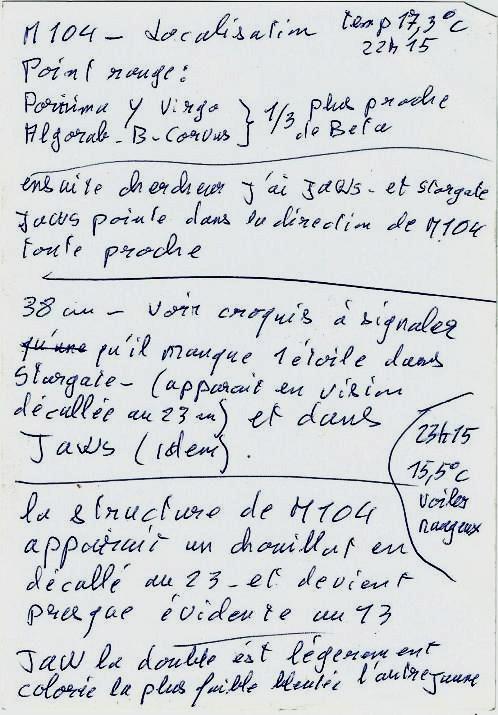 M104 - Localisation temp 17,3°C
22h15
Point rouge:
Porrima γ Virgo
Algorab - B - Corvus } 1/3 plus proche
de Beta
ensuite chercheur j'ai JAWS - et Stargate
JAWS pointe dans la direction de M104
toute proche
38 mm - voir croquis à signaler
qu'une qu'il manque 1 étoile dans
Stargate - (apparait en vision
décallée au 23 m) et dans
JAWS (idem).
23h15
15,5°C
voiles
nuageux
la structure de M104
apparait un chouillat en
décallé au 23 - et devient
presque évidente au 13
JAW la double est légèrement
colorée la plus faible bleutée l'autre jaune